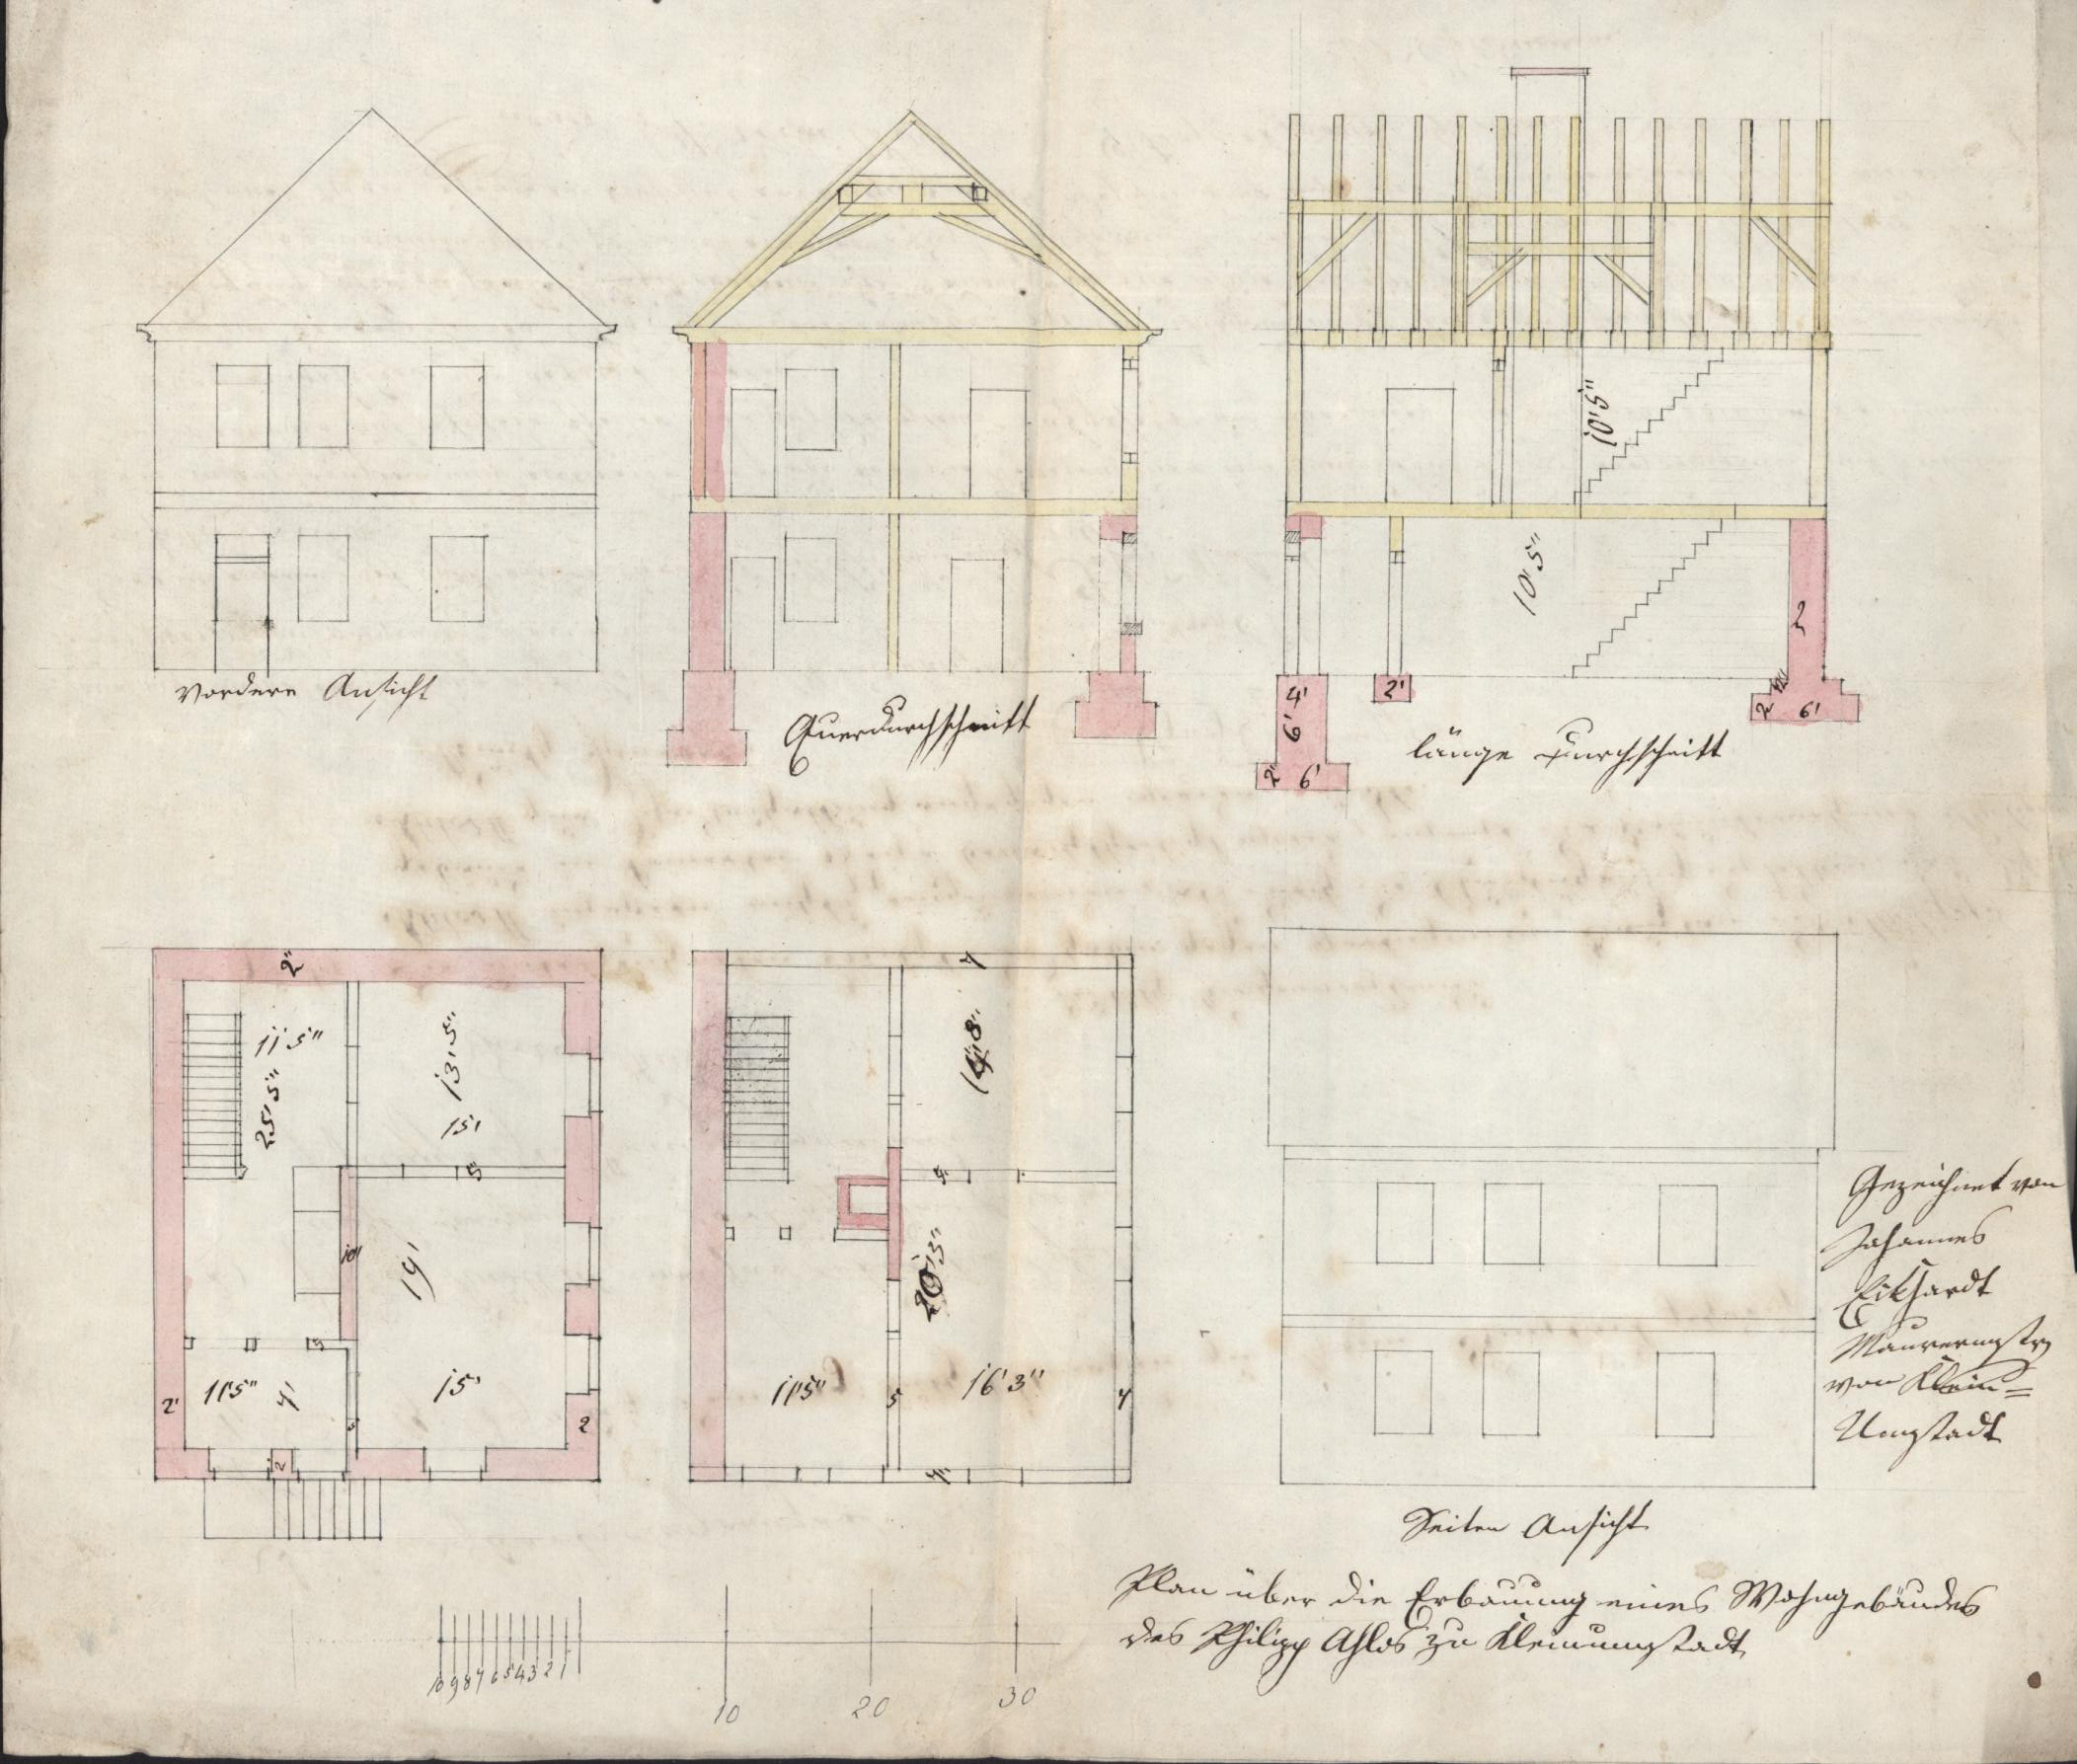 Vordere Ansicht
Querdurchschnitt
länge Durchschnitt
10'5"
10'5"
2
4'
6'
2'
6'
2'
2
6'
2"
11'5"
25'5"
13'5"
15'
5
10"
19'
3
11'5"
4'
15'
2'
5
2
2
7
5
16'3"
11'5"
5
7
Gezeichnet von
Johannes
Eckhardt
Maurermstr
von Klein=
Umstadt
Seiten Ansicht
Plan über die Erbauung eines Wohngebäudes
des Philipp Ahlos zu Kleinumstadt
10 9 8 7 6 5 4 3 2 1
10 20 30